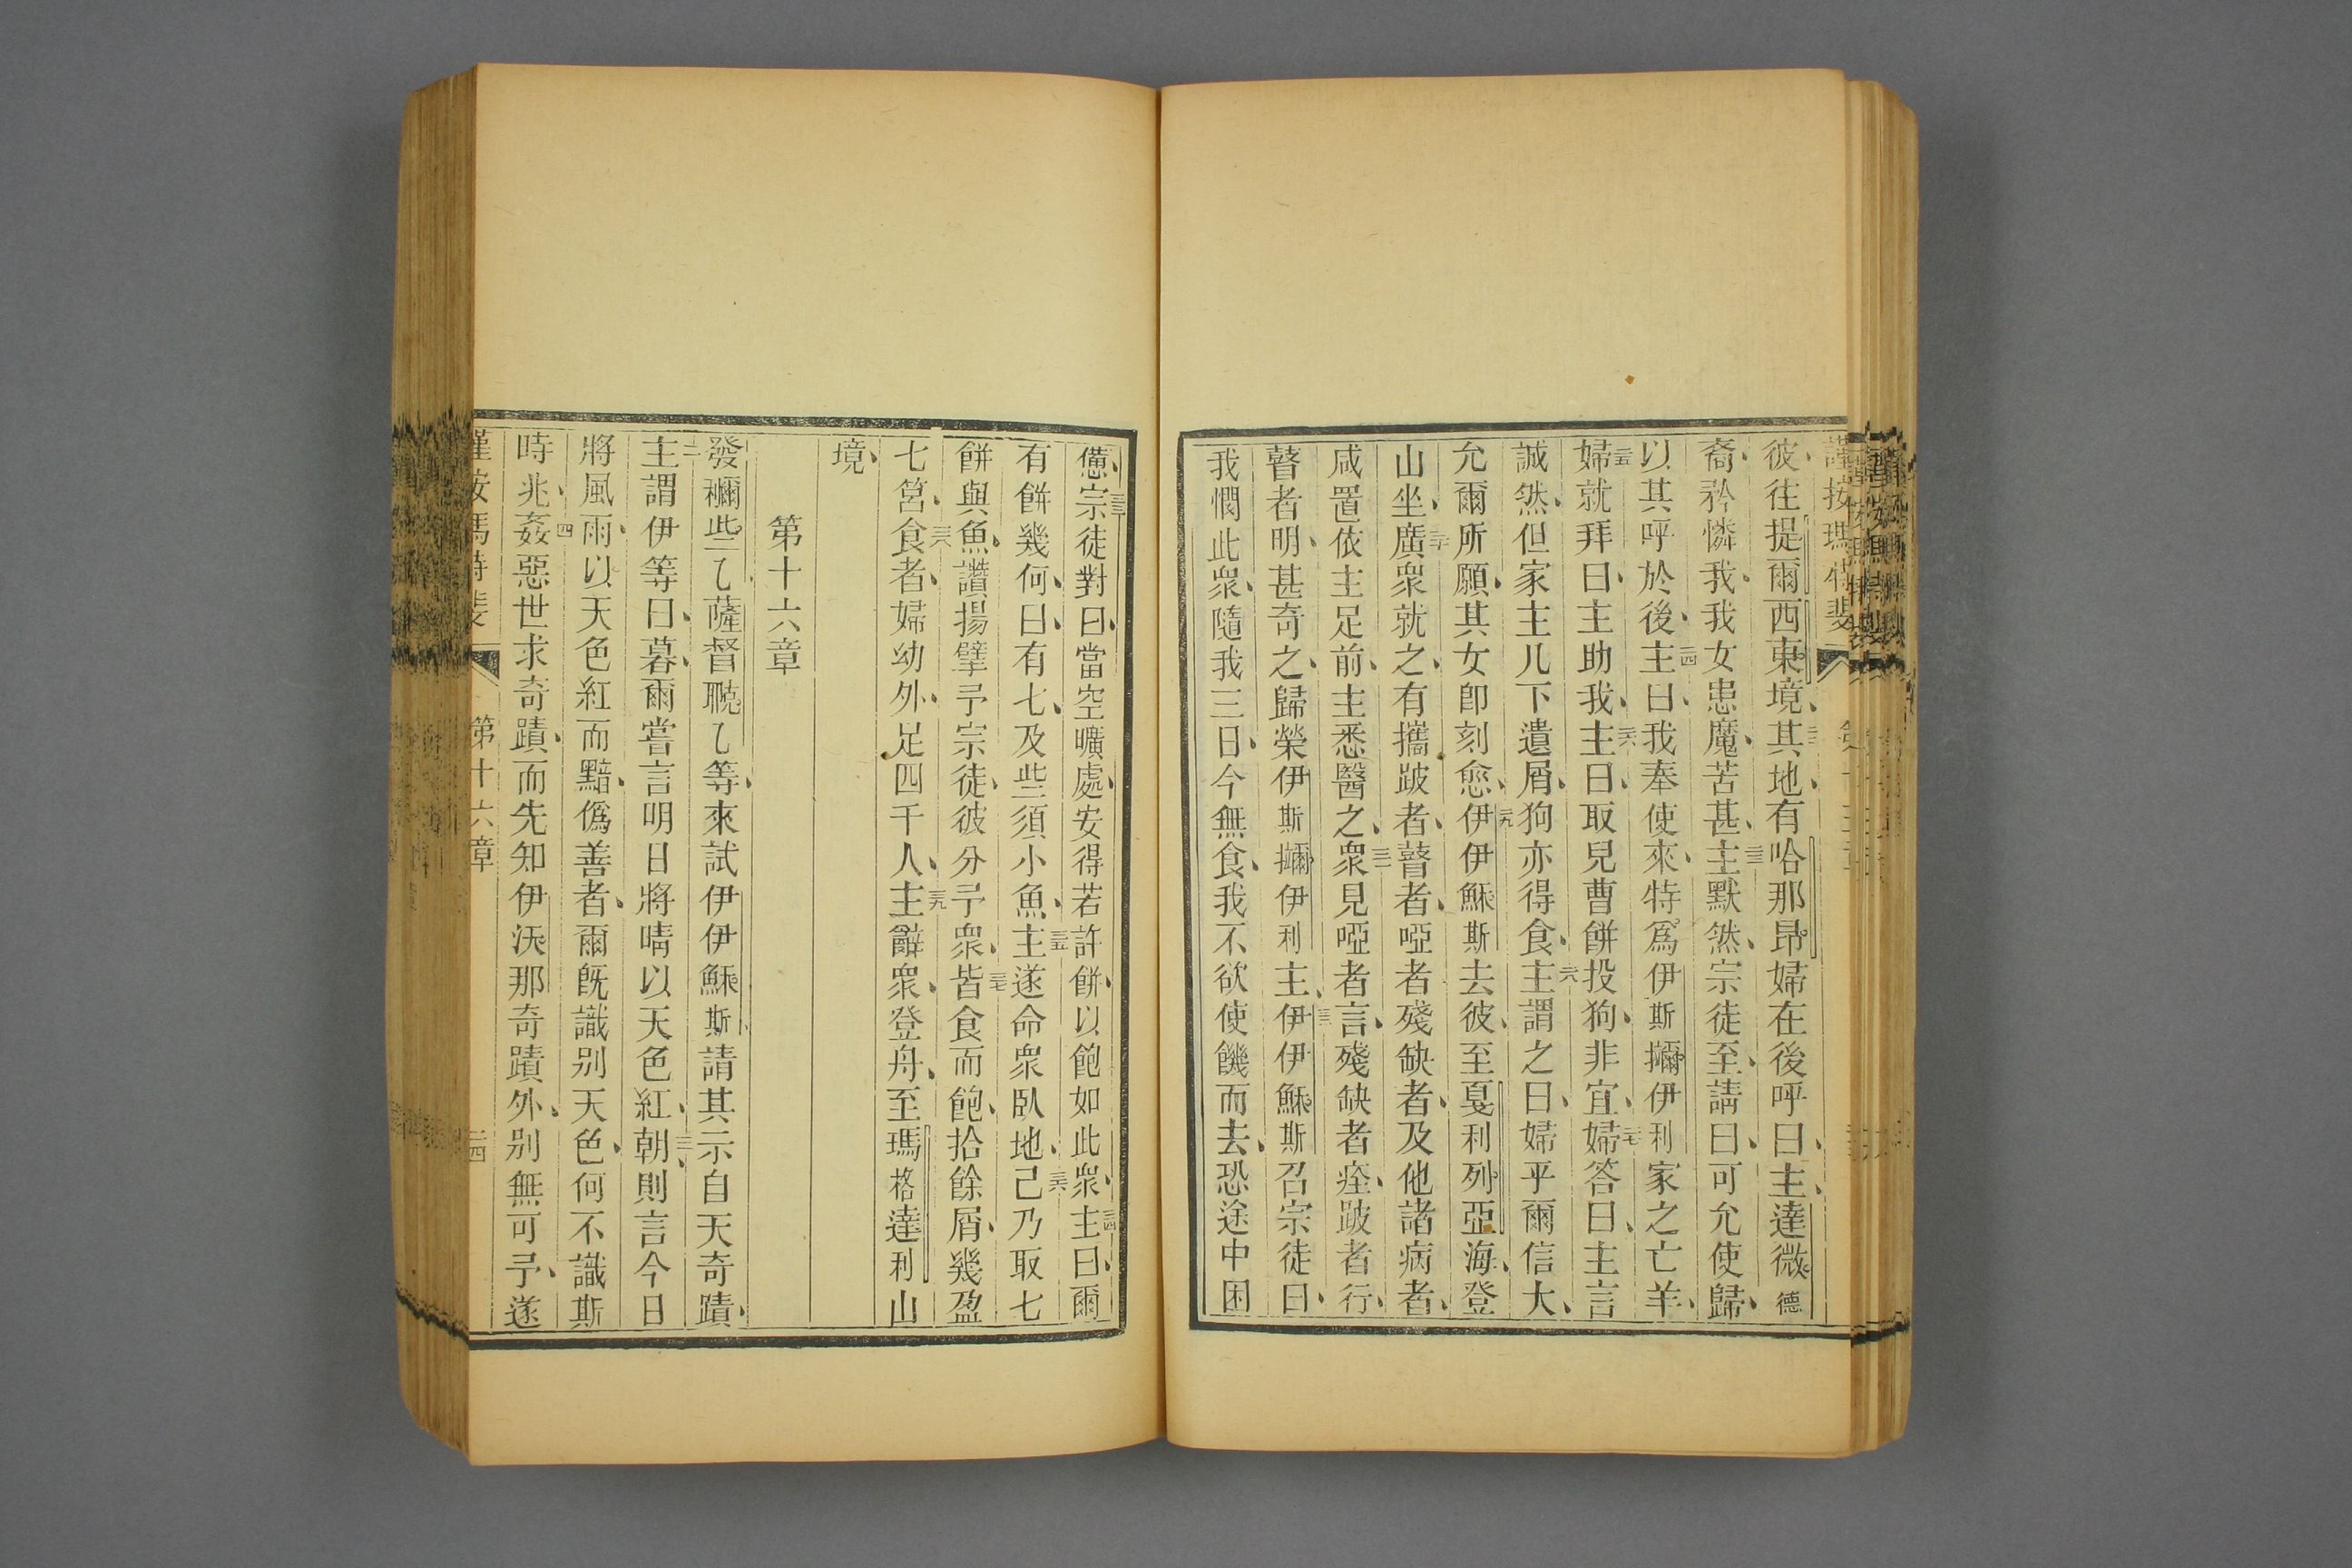 彼、往提爾西東境、其地、有哈那昂婦在後呼曰、主、達微德
裔、矜憐我、我女患魔、苦甚、主默然、宗徒至、請曰、可允使歸、
以其呼於後、主曰、我奉使來、特爲伊斯攦伊利家之亡羊、
婦就拜曰、主助我、主曰、取兒曹餅投狗、非宜、婦答曰、主言
誠然、但家主几下遺屑、狗亦得食、主謂之曰、婦乎爾信大、
允爾所願、其女卽刻愈、伊伊穌斯去彼、至戛利列亞海、登
山坐、廣衆就之、有攜跛者、瞽者、啞者殘缺者、及他諸病者、
咸置依主足前、主悉醫之、衆見啞者言、殘缺者痊、跛者行、
瞽者明、甚奇之、歸榮伊斯攦伊利主、伊伊穌斯召宗徒曰、
我憫此衆、隨我三日、今無食、我不欲使饑而去、恐途中困
憊、宗徒對曰、當空曠處、安得若許餅、以飽如此衆、主曰、爾
有餅幾何、曰、有七、及些須小魚、主遂命衆臥地、己乃取七
餅與魚、讚揚擘予宗徒、彼分予衆、皆食而飽、拾餘屑、幾盈
七筥、食者、婦幼外、足四千人、主辭衆、登舟、至瑪格達利山
境、
第十六章
發穪些乙薩督聰乙等、來試伊伊穌斯、請其示自天奇蹟、
主謂伊等曰、暮爾嘗言明日將晴以天色紅、朝則言今日
將風雨、以天色紅而黯、僞善者、爾旣識别天色、何不識斯
時兆、姦惡世求奇蹟、而先知伊㳇那奇蹟外、别無可予、遂
第十六章